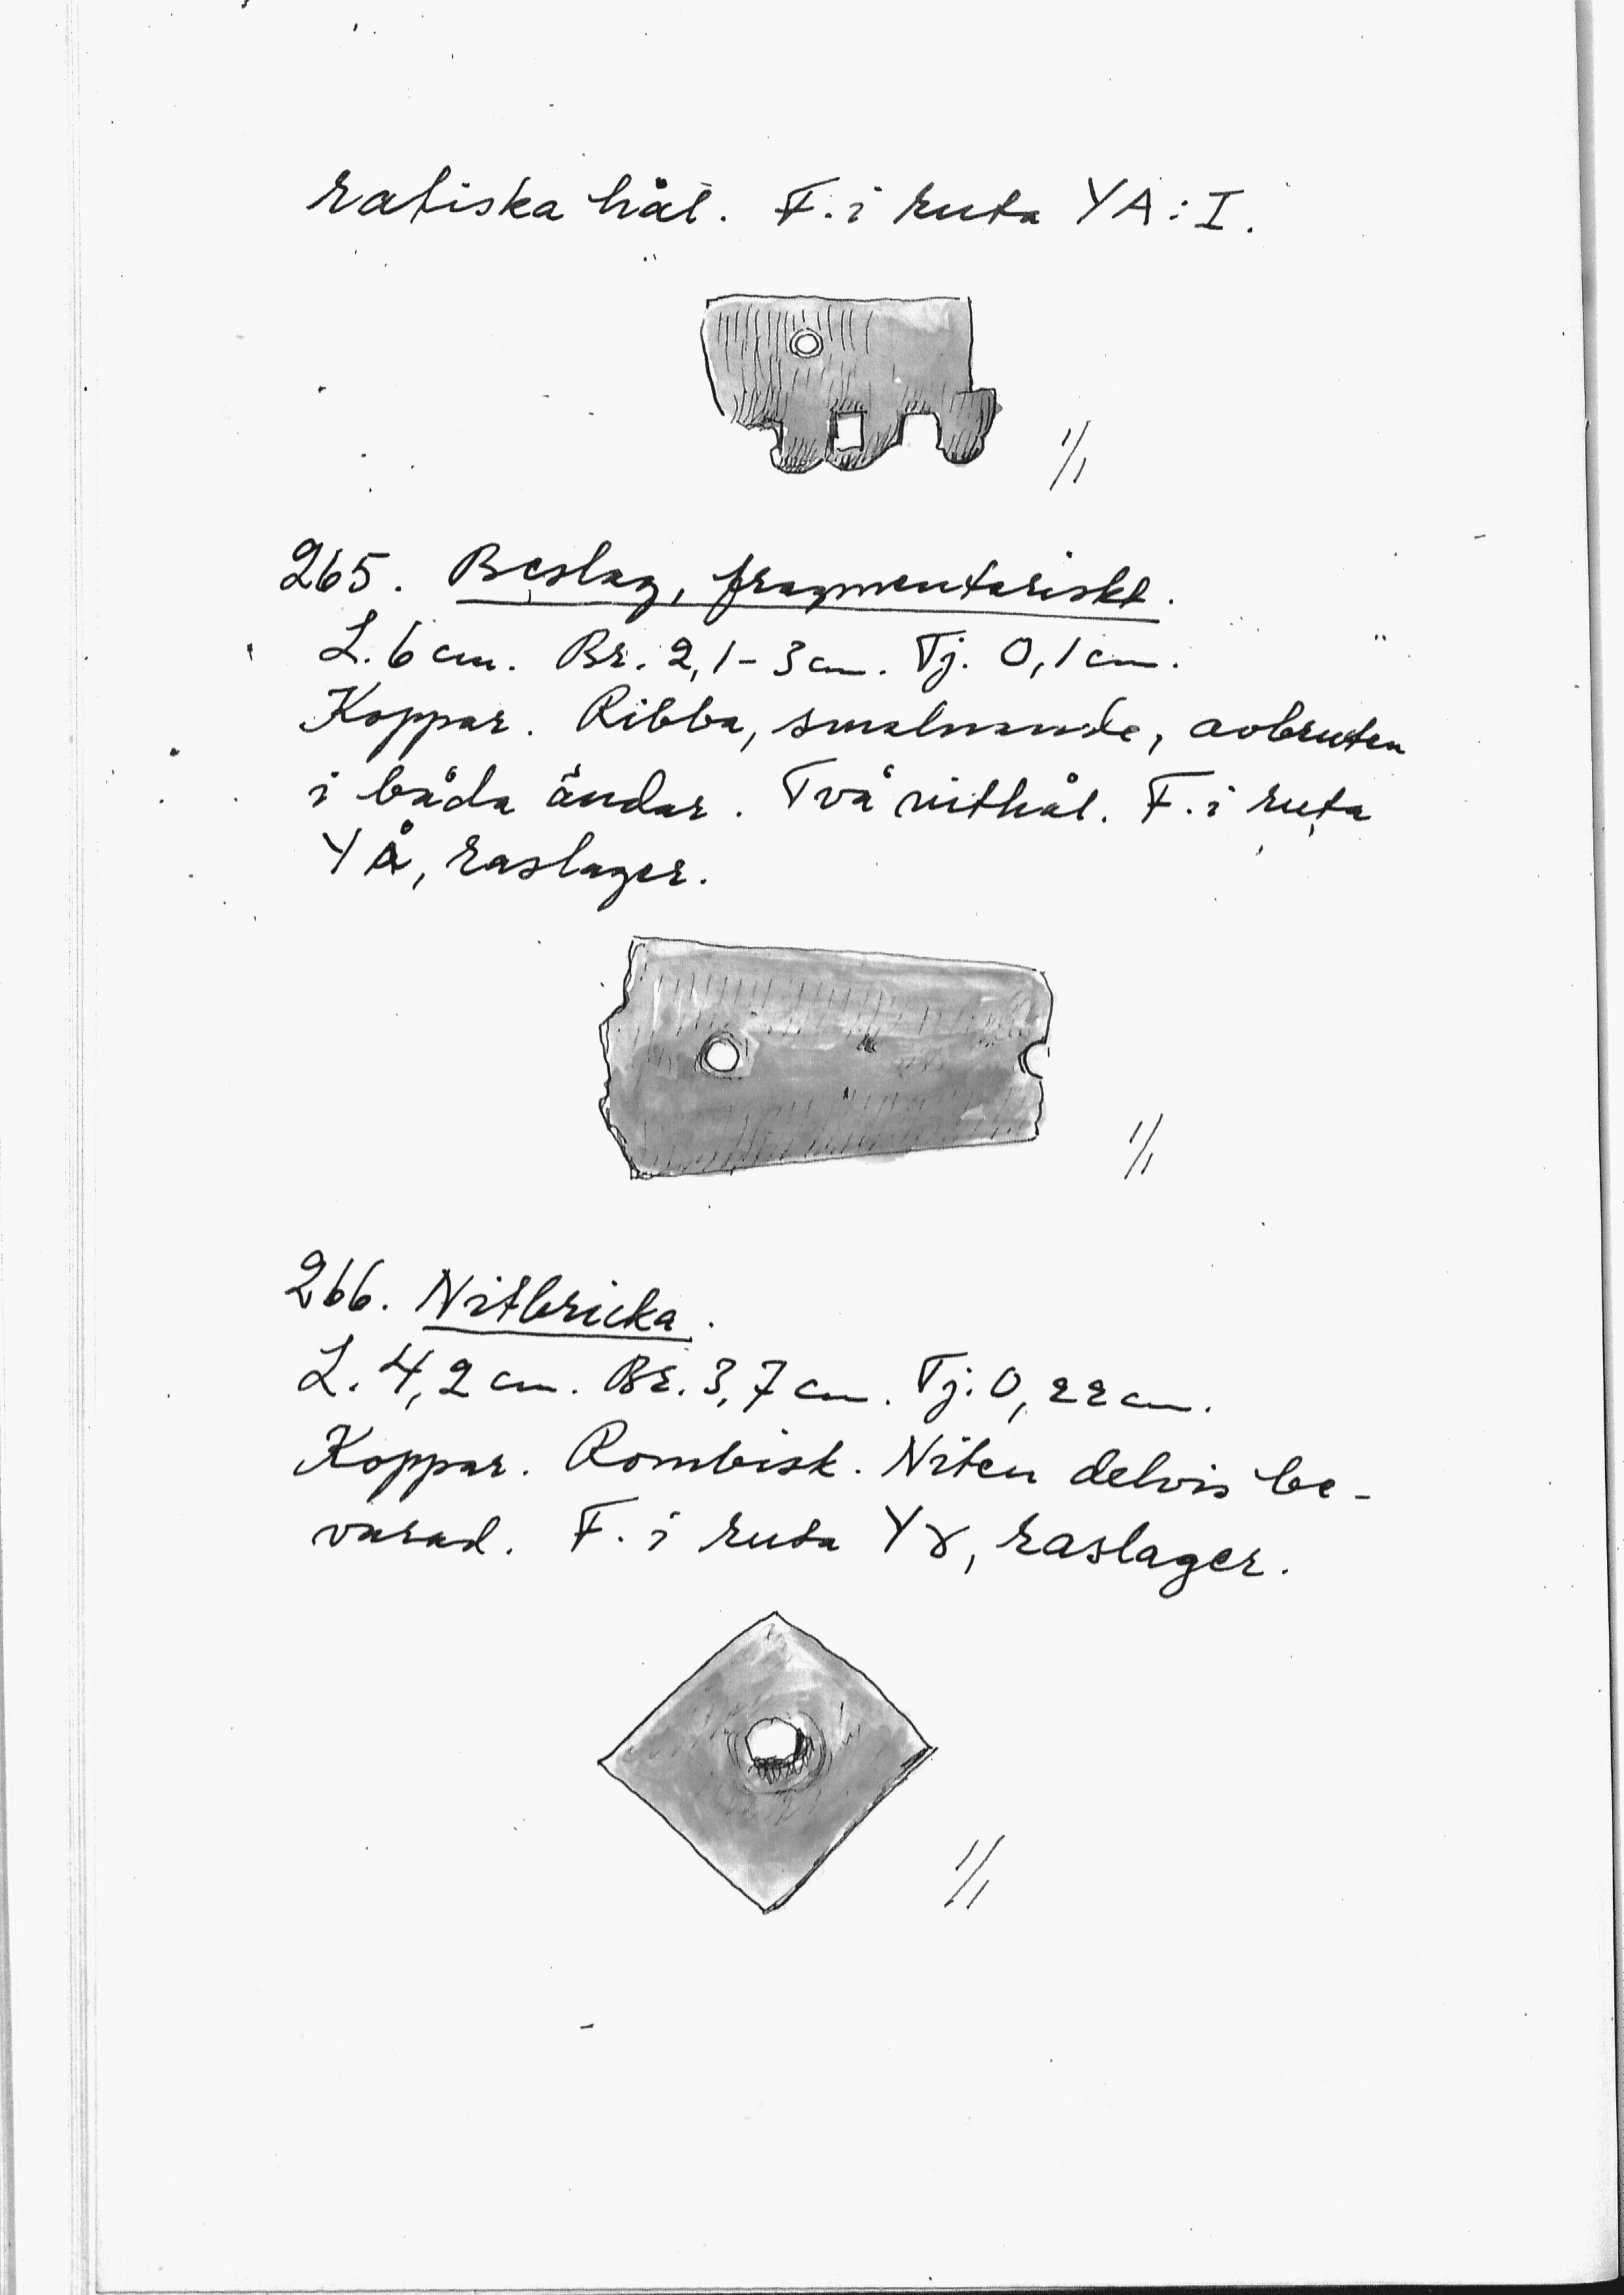 ratiska hål. F. i ruta YA:I.
1/1
265. Beslag, fragmentariskt.
L. 6 cm. Br. 2,1-3 cm. Tj. 0,1 cm.
Koppar. Ribba, smalnande, avbruten
i båda ändar. Två nithål. F. i ruta
YÅ, raslager.
1/1
266. Nitbricka.
L. 4,2 cm. Br. 3,7 cm. Tj. 0,22 cm.
Koppar. Rombisk. Niten delvis be-
varad. F. i ruta Yɣ, raslager.
1/1